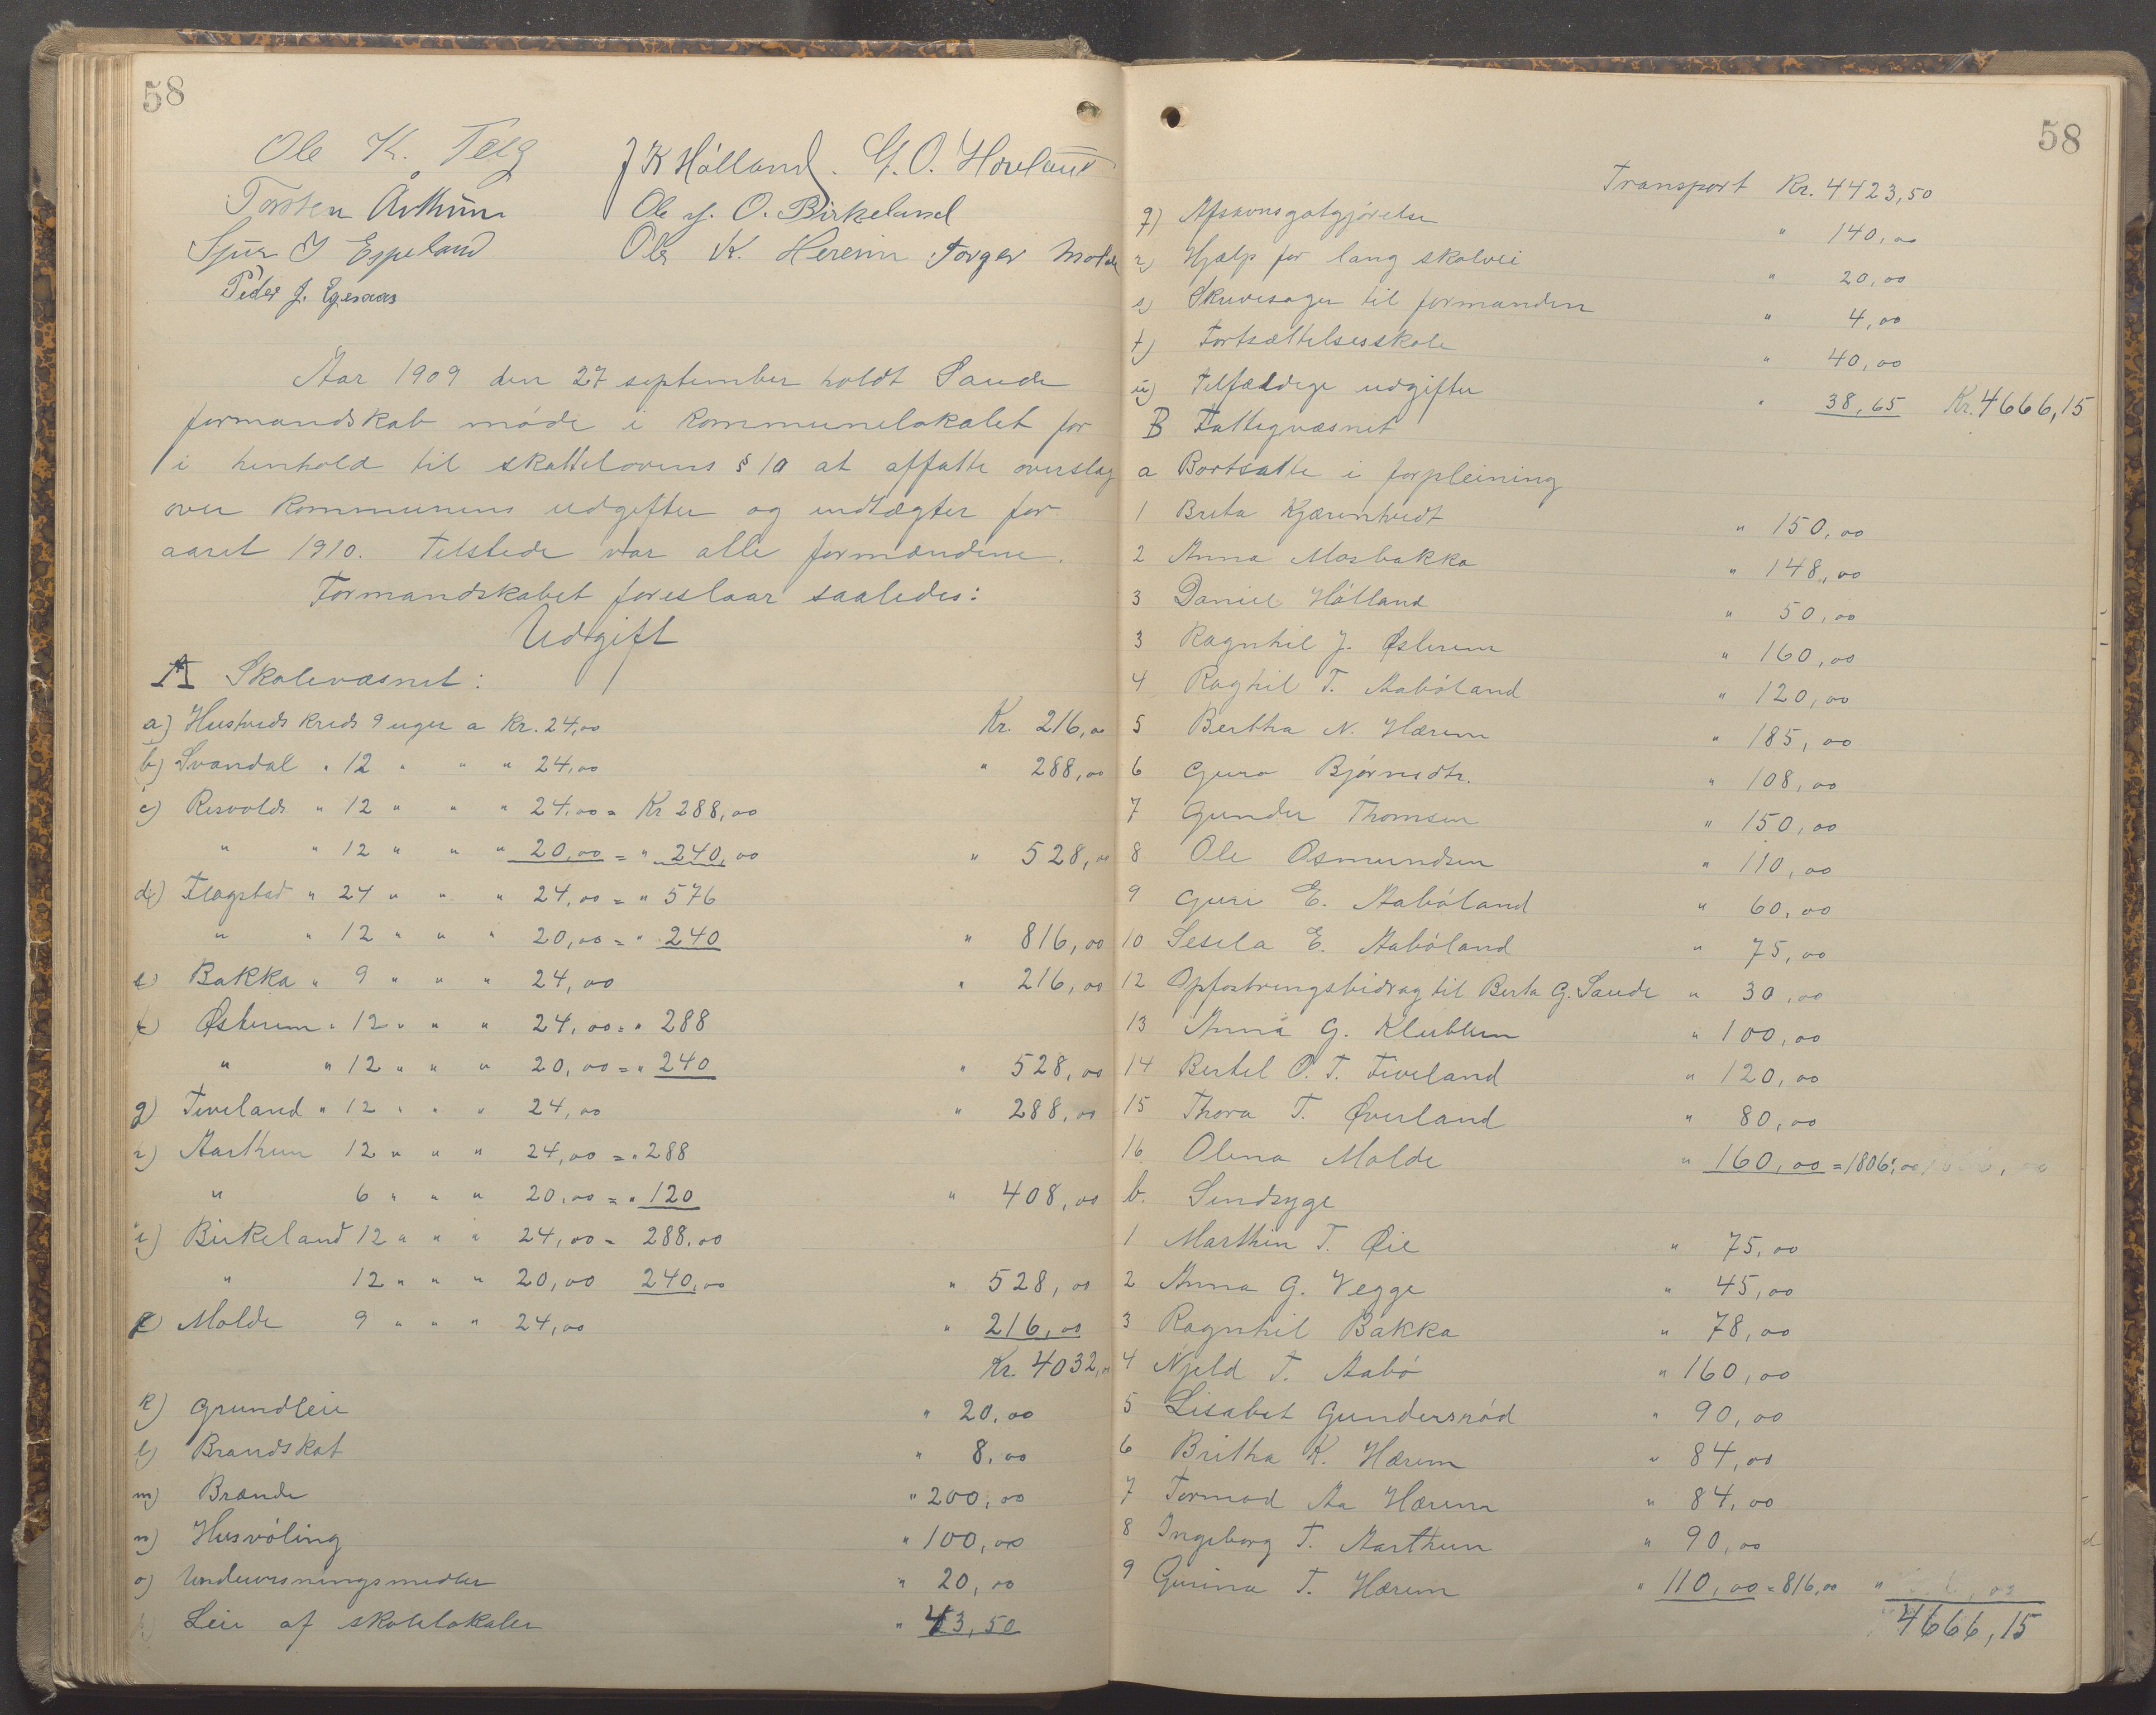 58
Ole K. Teig J K Hólland. G. O. Hovland
Torsten Århŭs Ole J. O. Birkeland
Sjur J Espeland Ole K. Herem Torger Molde
Peder J. Egenæs
Aar 1909 den 27 september holdt Saude
formandskab møde i kommunelokalet for
i henhold til skattelovens § 10 at affatte overslag
over kommunens udgifter og indtægter for
aaret 1910. Tilstede var alle formændene.
Formandskabet foreslaar saaledes:
Udgift
A Skolevæsnet:
a) Hustveds kreds 9 uger a Kr. 24,00 Kr. 216,00
b) Svandal " 12 " " " 24,00 " 288,00
c) Risvolds " 12 " " " 24,00 = Kr 288,00
" " 12 " " " 20,00 = " 240,00 " 528,00
d) Flagstad " 24 " " " 24,00 = " 576
" " 12 " " " 20,00 = " 240 " 816,00
e) Bakka " 9 " " " 24,00 " 216,00
f) Østerem " 12 " " " 24,00 = " 288
" " 12 " " " 20,00 = " 240 " 528,00
g) Fiveland " 12 " " " 24,00 " 288,00
h) Aarthun 12 " " " 24,00 = " 288
" 6 " " " 20,00 = " 120 " 408,00
i) Birkeland 12 " " " 24,00 = 288,00
" 12 " " " 20,00 240,00 " 528,00
Molde 9 " " " 24,00 " 216,00
Kr. 4032,00
k) Grundleie " 20,00
l) Brandskat " 8,00
m) Brænde " 200,00
n) Husvóling " 100,00
o) Undervisningsmedler " 20,00
p) Leie af skolelokaler " 43,50
58
Transport Kr. 4423,50
q) Afsavnsgotgjórelse " 140,00
r) Hjælp for lang skolevei " 20,00
s) Skrivesager til formanden " 4,00
t) Fortsættelsesskole " 40,00
u) Tilfældige udgifter " 38,65 Kr. 4666,15
B Fattigvæsnet
a Bortsatte i forpleining
1 Brita Kjærentvedt " 150,00
2 Anna Mosbakka " 148,00
3 Daniel Hólland " 50,00
3 Ragnhil J. Østerem " 160,00
4 Raghil T. Aabóland " 120,00
5 Bertha N. Hærem " 185,00
6 Guro Bjórnsdtr. " 108,00
7 Gunder Thomsen " 150,00
8 Ole Osmundsen " 110,00
9 Guri E. Aabóland " 60,00
10 Sesela E. Aabóland " 75,00
12 Opfostringsbidrag til Berta G. Saude " 30,00
13 Anna G. Klubben " 100,00
14 Bertel O. T. Fiveland " 120,00
15 Thora T. Øverland " 80,00
16 Olena Molde " 160,00 = 1806,00
b. Sindsyge
1 Marthin T. Øie " 75,00
2 Anna G. Vegge " 45,00
3 Ragnhil Bakka " 78,00
4 Njeld T. Aabó " 160,00
5 Lisabet Gundersród " 90,00
6 Britha K. Hærem " 84,00
7 Tormod Aa Hærem " 84,00
8 Ingeborg T. Aarthun " 90,00
9 Gurina T. Hærem " 110,00 = 816,00 "
4666,15